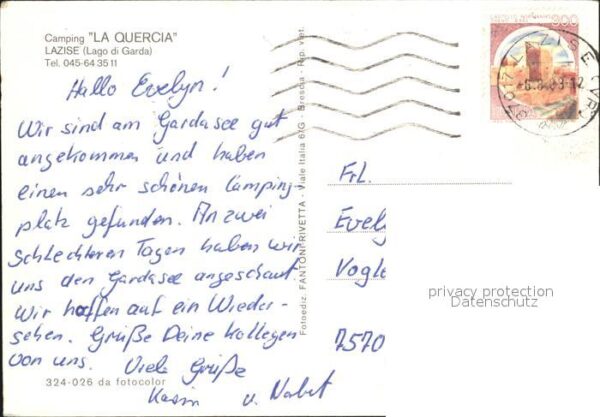 Camping "LA QUERCIA"
LAZISE (Lago di Garda)
Tel. 045-64 35 11
Hallo Evelyn!
Wir sind am Gardasee gut
angekommen und haben
einen sehr schönen Camping-
platz gefunden. An zwei
schlechteren Tagen haben wir
uns den Gardasee angeschaut.
Wir hoffen auf ein Wieder-
sehen. Grüße Deine Kollegen
von uns. Viele Grüße
Karin u. Norbert
324-026 da fotocolor
Fotoediz. FANTONI-RIVETTA - Viale Italia 6/G - Brescia - Rip. viet.
300
LAZISE
Frl.
Evely
Vogle
7570
privacy protection
Datenschutz